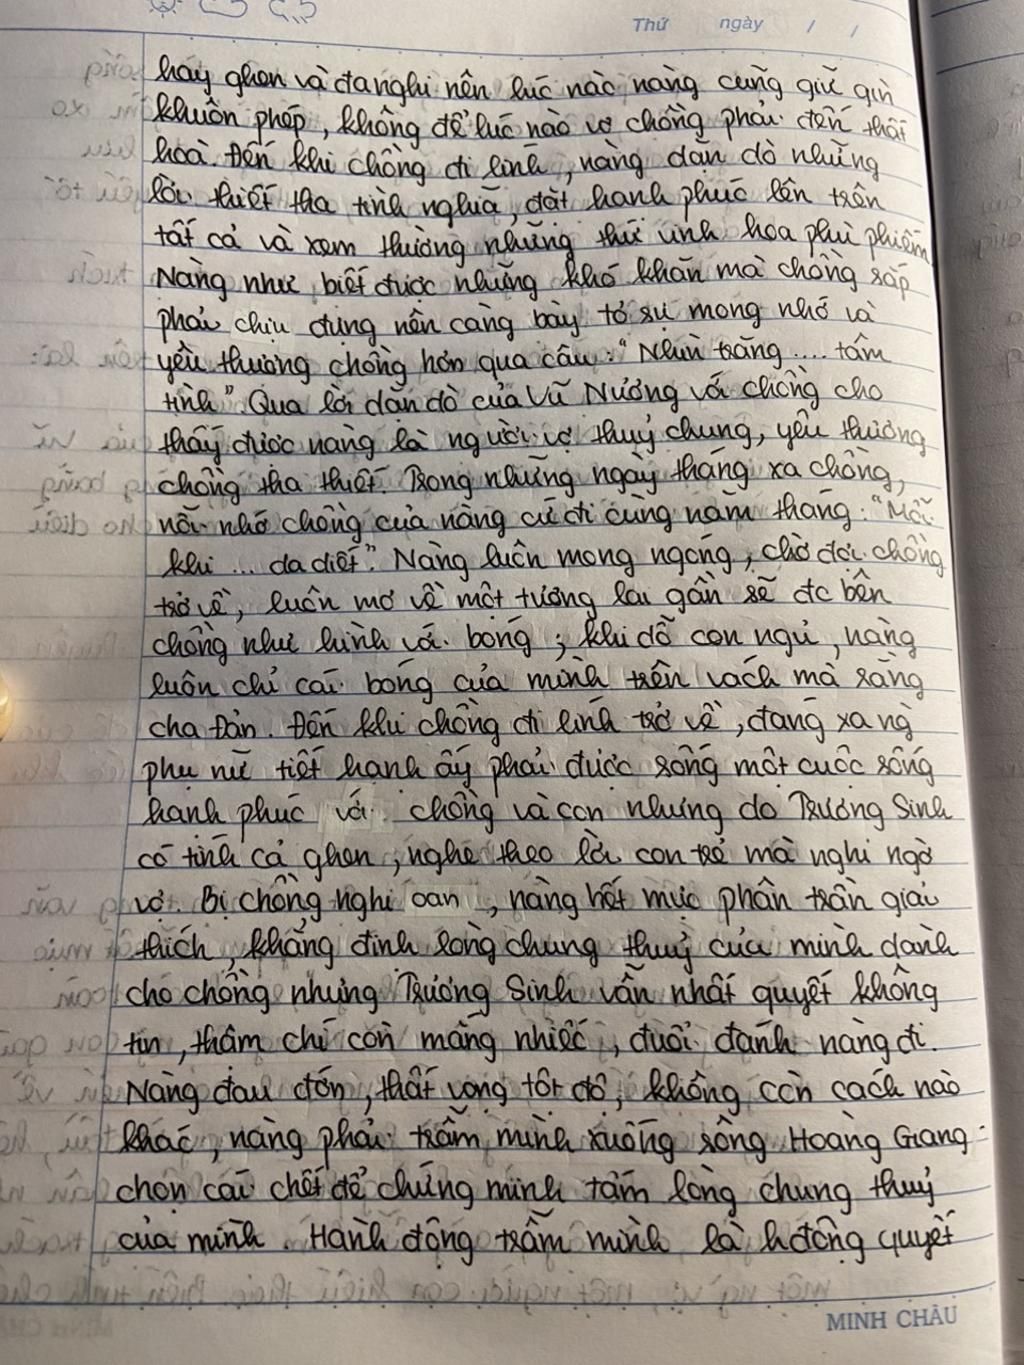 Thứ ngày / /
hay ghen và đa nghi nên lúc nào nàng cũng giữ gìn
khuôn phép, không để lúc nào vợ chồng phải đến thất
hoà. Đến khi chồng đi lính, nàng dặn dò những
lời thiết tha tình nghĩa, đặt hạnh phúc lên trên
tất cả và xem thường những thứ vinh hoa phù phiếm
Nàng như biết được những khó khăn mà chồng sắp
phải chịu đựng nên càng bày tỏ sự mong nhớ và
yêu thương chồng hơn qua câu: "Nhìn trăng .... tâm
tình" Qua lời dặn dò của Vũ Nương với chồng cho
thấy được nàng là người vợ thuỷ chung, yêu thương
chồng tha thiết. Trong những ngày tháng xa chồng,
nỗi nhớ chồng của nàng cứ đi cùng năm tháng: "Mỗi
khi ... da diết". Nàng luôn mong ngóng, chờ đợi chồng
trở về, luôn mơ về một tương lai gần sẽ đc bên
chồng như hình với bóng; khi dỗ con ngủ, nàng
luôn chỉ cái bóng của mình trên vách mà rằng
cha Đản. Đến khi chồng đi lính trở về, đáng ra ng
phụ nữ tiết hạnh ấy phải được sống một cuộc sống
hạnh phúc với chồng và con nhưng do Trương Sinh
có tính cả ghen, nghe theo lời con trẻ mà nghi ngờ
vợ. Bị chồng nghi oan, nàng hết mực phân trần giải
thích, khẳng định lòng chung thuỷ của mình dành
cho chồng nhưng Trương Sinh vẫn nhất quyết không
tin, thậm chí còn mắng nhiếc, đuổi đánh nàng đi.
Nàng đau đớn, thất vọng tột độ, không còn cách nào
khác, nàng phải trẫm mình xuống sông Hoàng Giang
chọn cái chết để chứng minh tấm lòng chung thuỷ
của mình. Hành động trẫm mình là hđộng quyết
MINH CHÂU